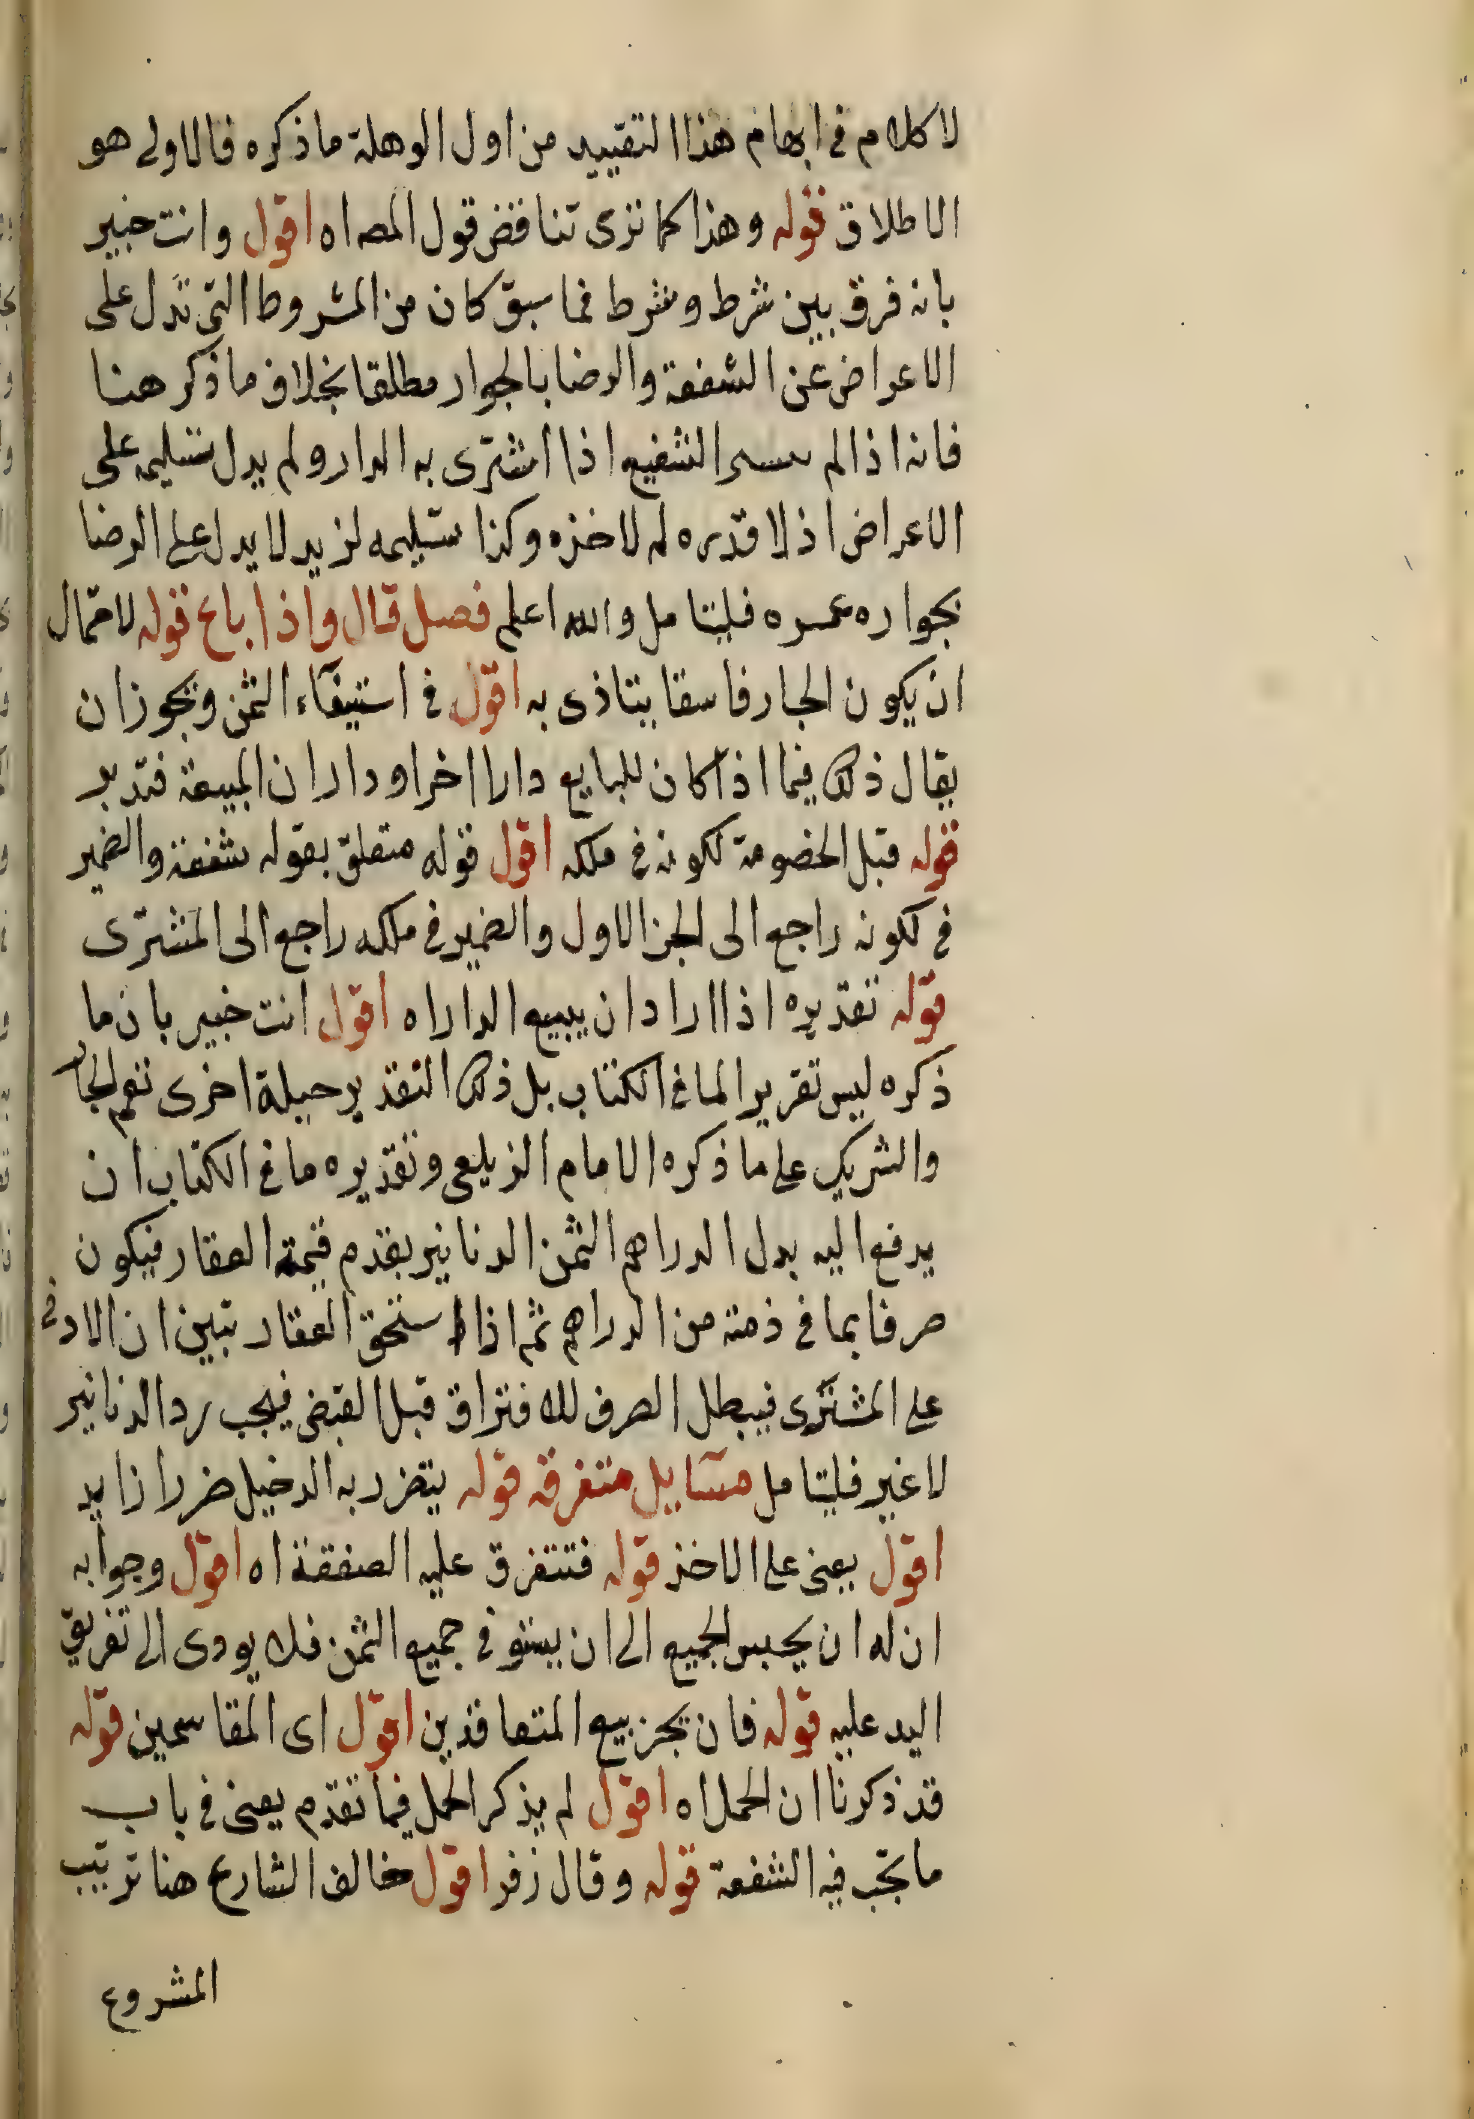 لا كلام في ابهام هذا التقييد من اول الوهلة ما ذكره فالاولى هو
الاطلاق قوله وهذا كما نرى تناقض قول المص اه اقول وانت خبير
بانه فرق بين شرط وشرط فما سبق كان من الشروط التي تدل على
الاعراض عن الشفعة والرضا بالجوار مطلقا بخلاف ما ذكر هنا
فانه اذا لم الشفيع اذا اشترى به الدار ولم يدل تسليمه على
الاعراض اذ لا قدره له لاخذه وكذا تسليمه لزيد لا يدل على الرضا
بجواره عمره فليتامل والله اعلم فصل قال واذا باع قوله لاحتمال
ان يكون الجار فاسقا يتاذى به اقول في استيفاء الثمن ويجوز ان
يقال ذلك فيما اذا كان للبايع دارا اخرا ودار ان المبيعة فتدبر
قوله قبل الخصومة لكونه في ملكه اقول قوله متعلق بقوله شفعة والضمير
في لكونه راجع الى الجزا الاول والضمير في ملكه راجع الى المشترى
قوله تقديره اذا اراد ان يبيع الدار اه اقول انت خبير بان ما
ذكره ليس تقريرا لما في الكتاب بل ذلك التقدير حيلة اخرى تعم الجار
والشريك على ما ذكره الامام الزيلعي وتقديره ما في الكتاب ان
يدفع اليه بدل الدراهم الثمن الدنانير بقدم قيمة العقار فيكون
صرفا بما في ذمته من الدراهم ثم اذا استحق العقار تبين ان لا دين
على المشترى فيبطل الصرف للافتراق قبل القبض فيجب رد الدنانير
لا غير فليتامل مسايل متفرقة قوله يتضرر به الدخيل ضررا زايد
اقول يعني على الاخذ قوله فتتفرق عليه الصفقة اه اقول وجوابه
ان له ان يحبس الجميع الى ان يستوفي جميع الثمن فلا يودى الى تفريق
اليد عليه قوله فان يجز بيع المتعاقدين اقول اى المقاسمين قوله
قد ذكرنا ان الحمل اه اقول لم يذكر الحمل فيما تقدم يعني في باب
ما تجب فيه الشفعة قوله وقال زفر اقول خالف الشارع هنا ترتيب
المشروع